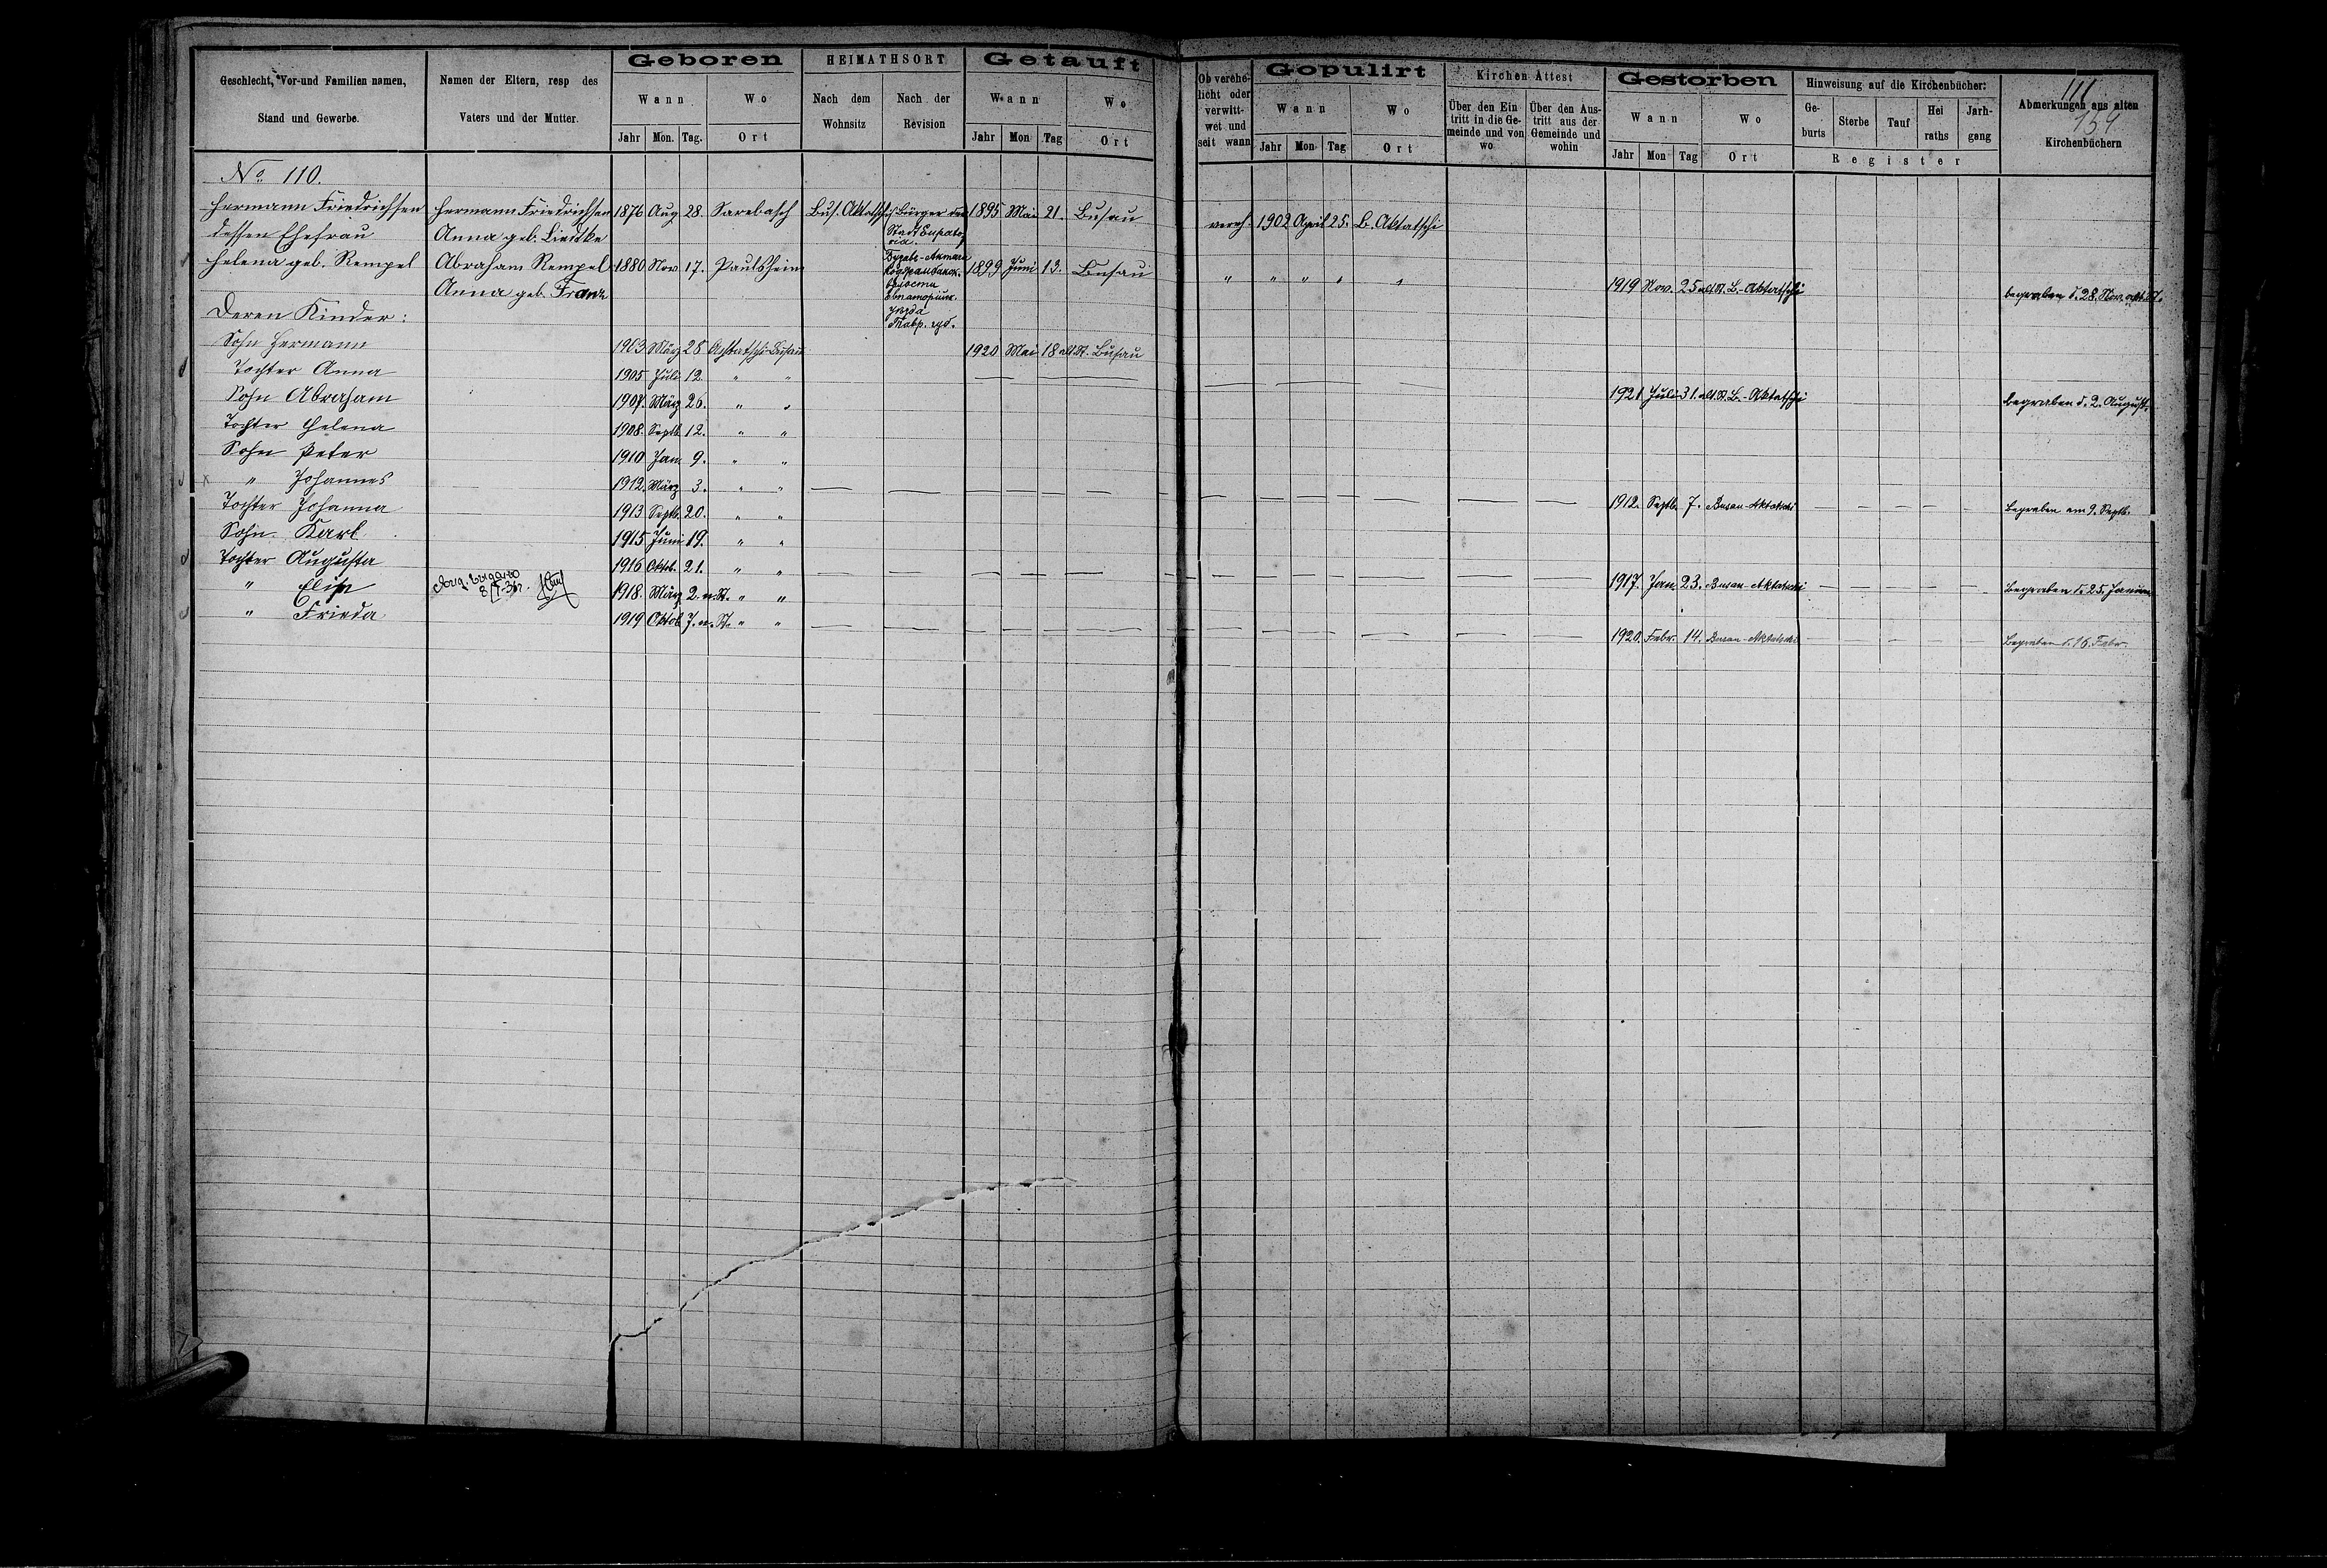 Geschlecht, Vor-und Familien namen, Stand und Gewerbe.
Namen der Eltern, resp des Vaters und der Mutter.
Geboren
Wann
Wo
Jahr Mon. Tag. Ort
HEIMATHSORT
Nach dem Wohnsitz
Nach der Revision
Getauft
Wann
Wo
Jahr Mon Tag Ort
Ob verehe-
licht oder
verwitt-
wet und
seit wann
Gopulirt
Wann
Wo
Jahr Mon Tag Ort
Kirchen Attest
Über den Ein
tritt in die Ge-
meinde und von
wo
Über den Aus-
tritt aus der
Gemeinde und
wohin
Gestorben
Wann
Wo
Jahr Mon Tag Ort
Hinweisung auf die Kirchenbücher:
Ge-
burts
Sterbe
Tauf
Hei
raths
Jarh-
gang
Register
111
Abmerkungen aus alten
Kirchenbüchern
No. 110.
Hermann Friedrichsen Hermann Friedrichsen 1876 Aug 28. Sarabasch Bus. Aktatschi Bürger der 1895 Mai 21. Busau vereh. 1902 April 25. B. Aktatschi
dessen Ehefrau Anna geb. Liedtke Stadt Eupato-
ria.
Helena geb. Rempel Abraham Rempel 1880 Nov 17. Paulsheim 1899 Juni 13. Busau " " " " " 1919 Nov. 25 alt. St. B.-Aktatschi begraben d. 28. Nov. alt. St.
Anna geb. Franz
Бузавъ-Актачи
волости
Евпаторійск.
уѣзда
Тавр. губ.
Deren Kinder:
Sohn Hermann 1903 März 28 Aktatschi-Busau 1920 Mai 18 alt St. Busau
Tochter Anna 1905 Juli 12. " " 1921 Juli 31. alt. St. B.-Aktatschi begraben d. 2. August.
Sohn Abraham 1907. März 26. " "
Tochter Helena 1908. Septb. 12. " "
Sohn Peter 1910 Jan. 9. " "
" Johannes 1912. März 3. " " 1912. Septb. 7. Busau-Aktatschi Begraben am 9. Septb.
Tochter Johanna 1913 Septb. 20. " "
Sohn Karl 1915 Juni 19. " "
Tochter Augusta 1916 Oktob. 21. " " 1917. Jan. 23. Busau-Aktatschi Begraben d. 25. Januar
" Elisa 1918. März 2. n. St. " "
" Frieda 1919 Oktob. 7. n. St. " " 1920. Febr. 14. Busau-Aktatschi Begraben d. 16. Febr.